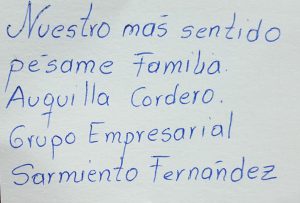 Nuestro más sentido
pésame Familia.
Auquilla Cordero.
Grupo Empresarial
Sarmiento Fernández